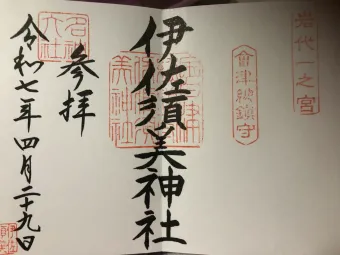 岩代一之宮
會津総鎮守
伊佐須美神社
参拝
名神大社
令和七年四月二十九日